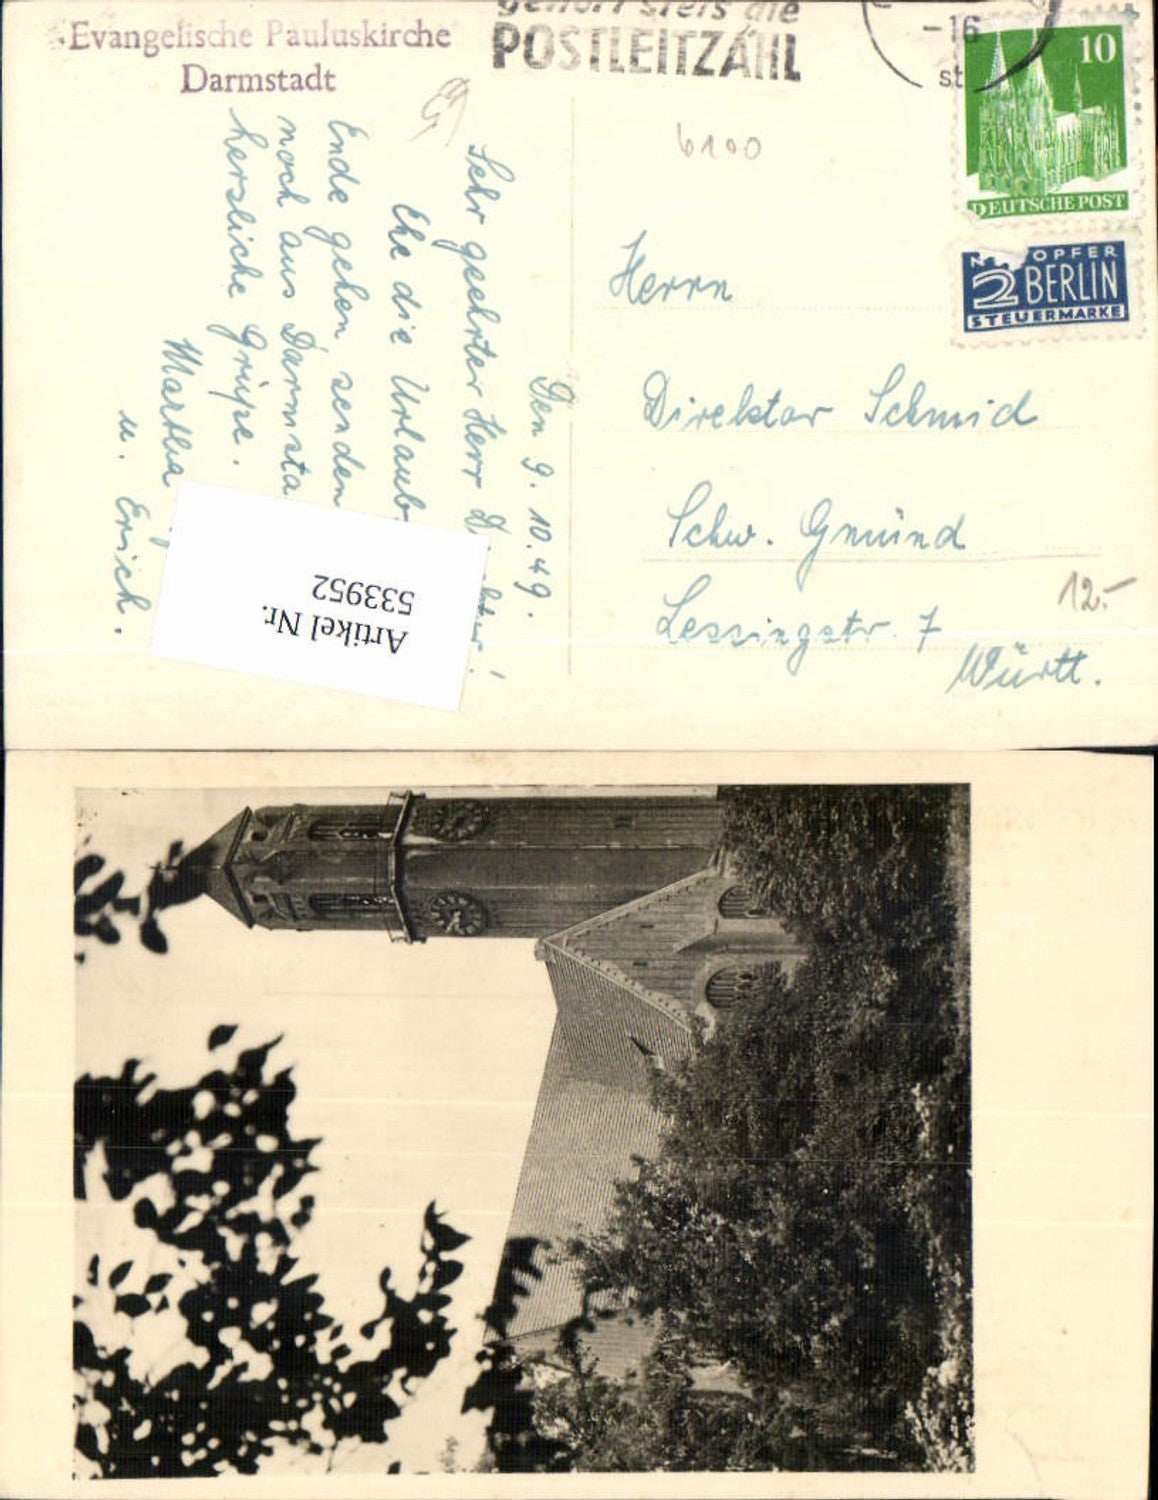 Evangelische Pauluskirche
Darmstadt
gehört stets die
POSTLEITZAHL
-16
st
10
DEUTSCHE POST
OPFER
2 BERLIN
STEUERMARKE
6100
Den 9. 10. 49.
Sehr geehrter Herr
Ehe die Urlaub
Ende gehen, senden
noch aus Darmsta
herzliche Grüße.
Martha
u. Erich.
Herrn
Direktor Schmid
Schw. Gmünd
Lessingstr. 7
Württ.
12.-
Artikel Nr.
533952